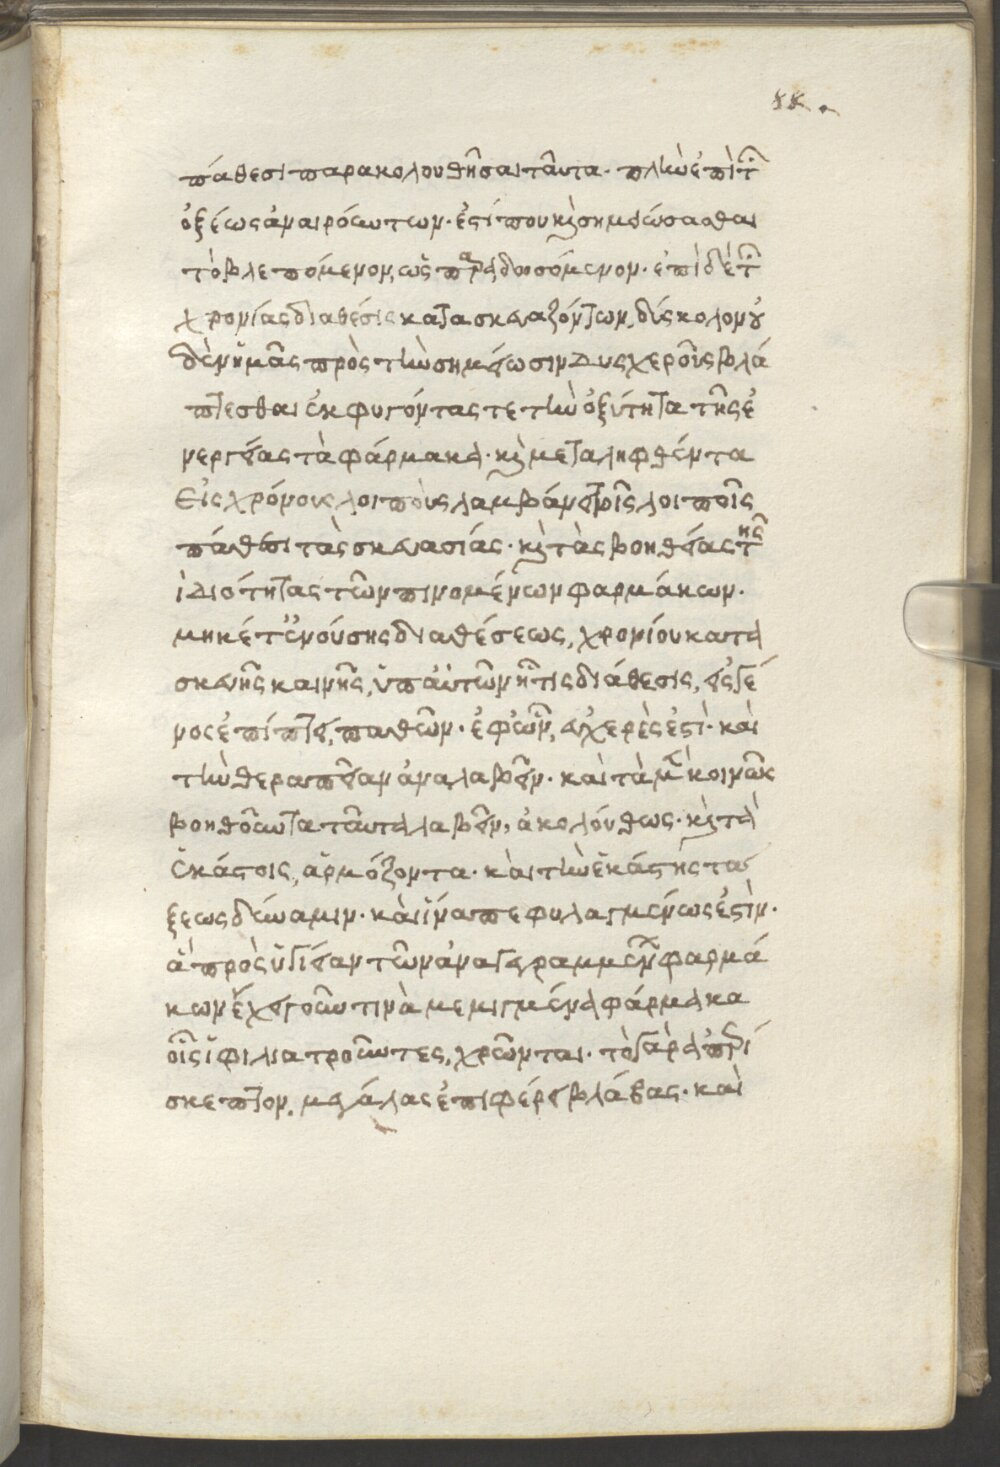 πάθεσι παρακολουθῆσαι ταῦτα· πλὴν ἐπὶ τ̑
ὀξέως ἀναιρούντων· ἔστί που κὶ σημειώσασθαι
τὸ βλεπόμενον, ὡς παραδωσόμενον· ἐπὶ δὲ τ̑
χρονίας διαθέσις κατασκευαζόντων, δύσκολον οὐ
δὲν ἡμᾶς πρὸς τὴν σημείωσιν δυσχεροῦς βλά
πτεσθαι ἐκφυγόντας τε τὴν ὀξύτητα τῆς ἐ
νεργείας τὰ φάρμακα· κὶ μεταληφθέντα
εἰς χρόνους λοιποὺς λαμβάνει τοῖς λοιποῖς
πάθεσι τὰς σκευασίας· κὶ τὰς βοηθείας τῆς
ἰδιότητας τῶν πινομένων φαρμάκων·
μηκέτ' ἐνούσης διαθέσεως, χρονίου κατα
σκευῆς καινῆς, ὑπ' αὐτῶν ἥτις διάθεσις, εἷς γέ
νος ἐπίπτει, παθῶν· ἐφ' ὧν, εὐχερὲς ἐστὶ· καὶ
τὴν θεραπείαν ἀναλαβεῖν· καὶ τὰ μὲν κοινῶς
βοηθοῦντα ταῦτα λαβεῖν, ἀκολούθως· κὶ τὰ
ἑκάστοις, ἁρμόζοντα· καὶ τὴν ἑκάστης τά
ξεως δύναμιν· καὶ ἵνα πεφυλαγμένως ἐστὶν·
ἃ πρὸς ὑγίειαν τῶν ἀναγεγραμμένων φαρμά
κων ἔχει γοῦν τινὰ μεμιγμένα φάρμακα
οἷς ἰ φιλιατροῦντες, χρῶνται· τὸ γὰρ ἀπερί
σκεπτον, μεγάλας ἐπιφέρει βλάβας· καὶ